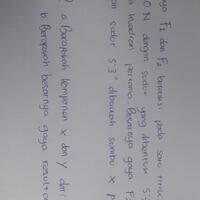 ya F₁ dan F₂ bereaksi pada satu titik
0 N dengan sudut yang dibentuk 5
kuadran pertama. Besarnya gaya F₂
an sudut 53° dibawah sumbu x p
? a. Berapakah komponen x dan y dari
b. Berapakah besarnya gaya resulta